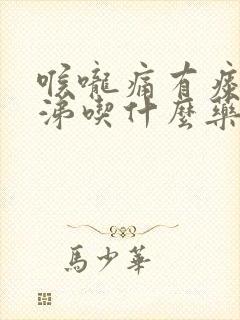 喉嚨痛有痰
涕喫什麼藥
馬少華